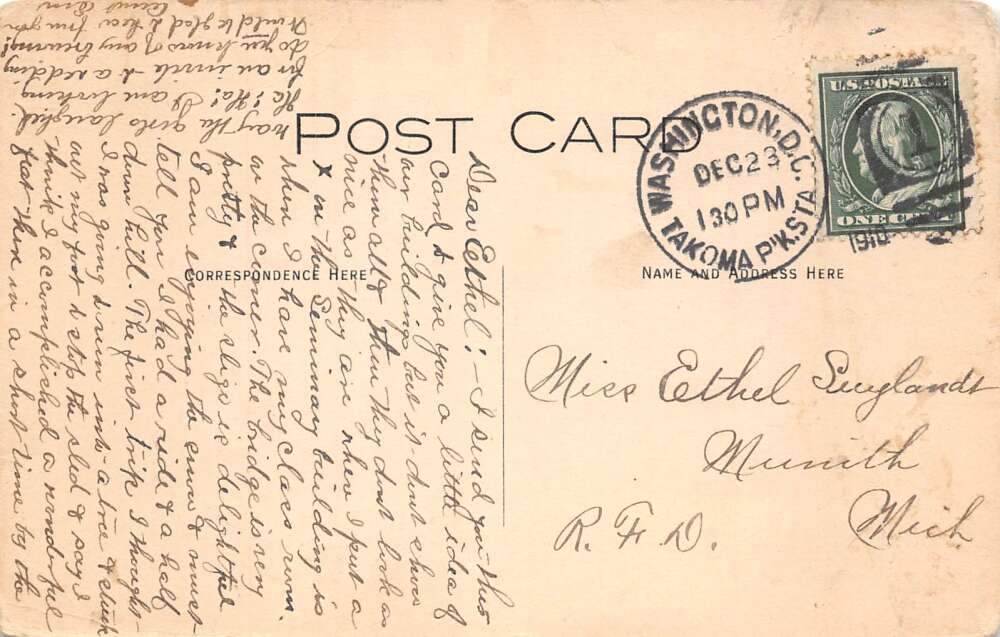 POST CARD
CORRESPONDENCE HERE
NAME AND ADDRESS HERE
WASHINGTON, D.C.
DEC 23
1 30 PM
1910
TAKOMA P'K. STA.
U.S. POSTAGE
ONE CENT
Miss Ethel
Munith
Mich
R. F. D.
Dear Ethel:- I send you this
card to give you a little idea of
our buildings but it dont show
them all & then they dont look as
nice as they are where I put a
x on this Seminary building is
where I have my class room.
in the corner. The bridge is very
pretty & the is delightful
I am enjoying the snow & must
tell you I had a ride & a half
down hill. The first trip I thought
I was going down into a tree & stuck
out my foot to stop the sled & say I
think I accomplished a wonderful
feat then in a short time by the
way the girls laughed.
Ha! Ha! I am looking
for an invite to a wedding
do you know of any brewing?
Would be glad to hear from you